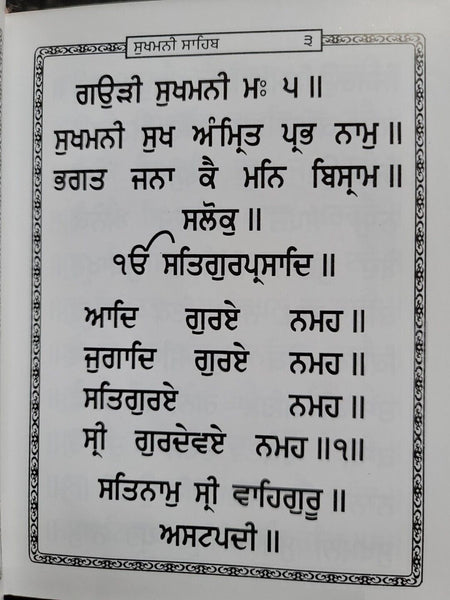 ਸੁਖਮਨੀ ਸਾਹਿਬ ੩
ਗਉੜੀ ਸੁਖਮਨੀ ਮਃ ੫ ॥
ਸੁਖਮਨੀ ਸੁਖ ਅੰਮ੍ਰਿਤ ਪ੍ਰਭ ਨਾਮੁ ॥
ਭਗਤ ਜਨਾ ਕੈ ਮਨਿ ਬਿਸ੍ਰਾਮ ॥
ਸਲੋਕੁ ॥
ੴ ਸਤਿਗੁਰਪ੍ਰਸਾਦਿ ॥
ਆਦਿ ਗੁਰਏ ਨਮਹ ॥
ਜੁਗਾਦਿ ਗੁਰਏ ਨਮਹ ॥
ਸਤਿਗੁਰਏ ਨਮਹ ॥
ਸ੍ਰੀ ਗੁਰਦੇਵਏ ਨਮਹ ॥੧॥
ਸਤਿਨਾਮੁ ਸ੍ਰੀ ਵਾਹਿਗੁਰੂ ॥
ਅਸਟਪਦੀ ॥